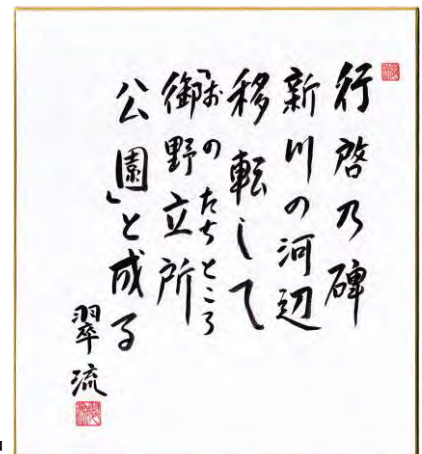 行啓乃碑
新川の河辺
移転して
「御野立所
おのたちところ
公園」と成る
翠流